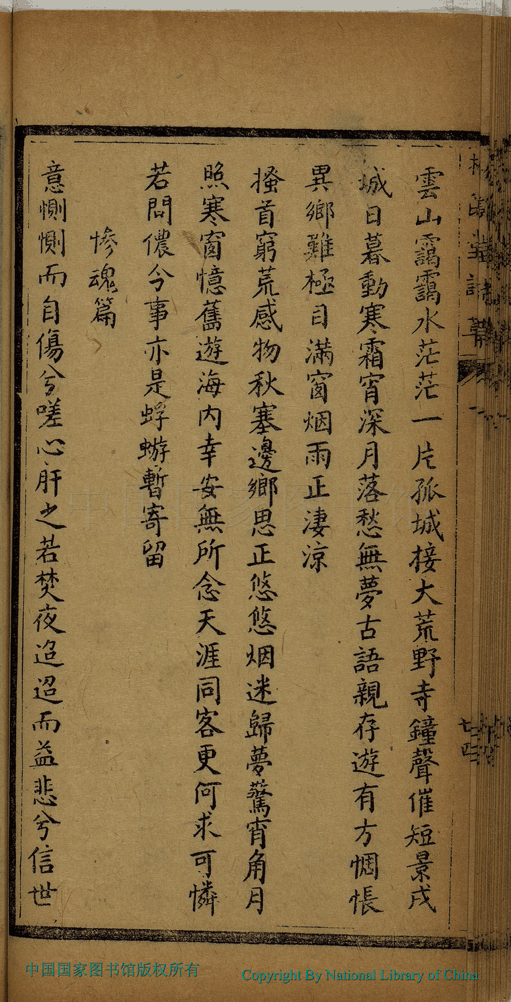 雲山靄靄水茫茫一片孤城接大荒野寺鐘聲催短景戍
城日暮動寒霜宵深月落愁無夢古語親存遊有方惆悵
異鄉難極目滿窗烟雨正淒涼
搔首窮荒感物秋塞邊鄉思正悠悠烟迷歸夢驚宵角月
照寒窗憶舊遊海內幸安無所念天涯同客更何求可憐
若問儂今事亦是蜉蝣暫寄留
慘魂篇
意惻惻而自傷兮嗟心肝之若焚夜迢迢而益悲兮信世
七四
中国国家图书馆版权所有
Copyright By National Library of China